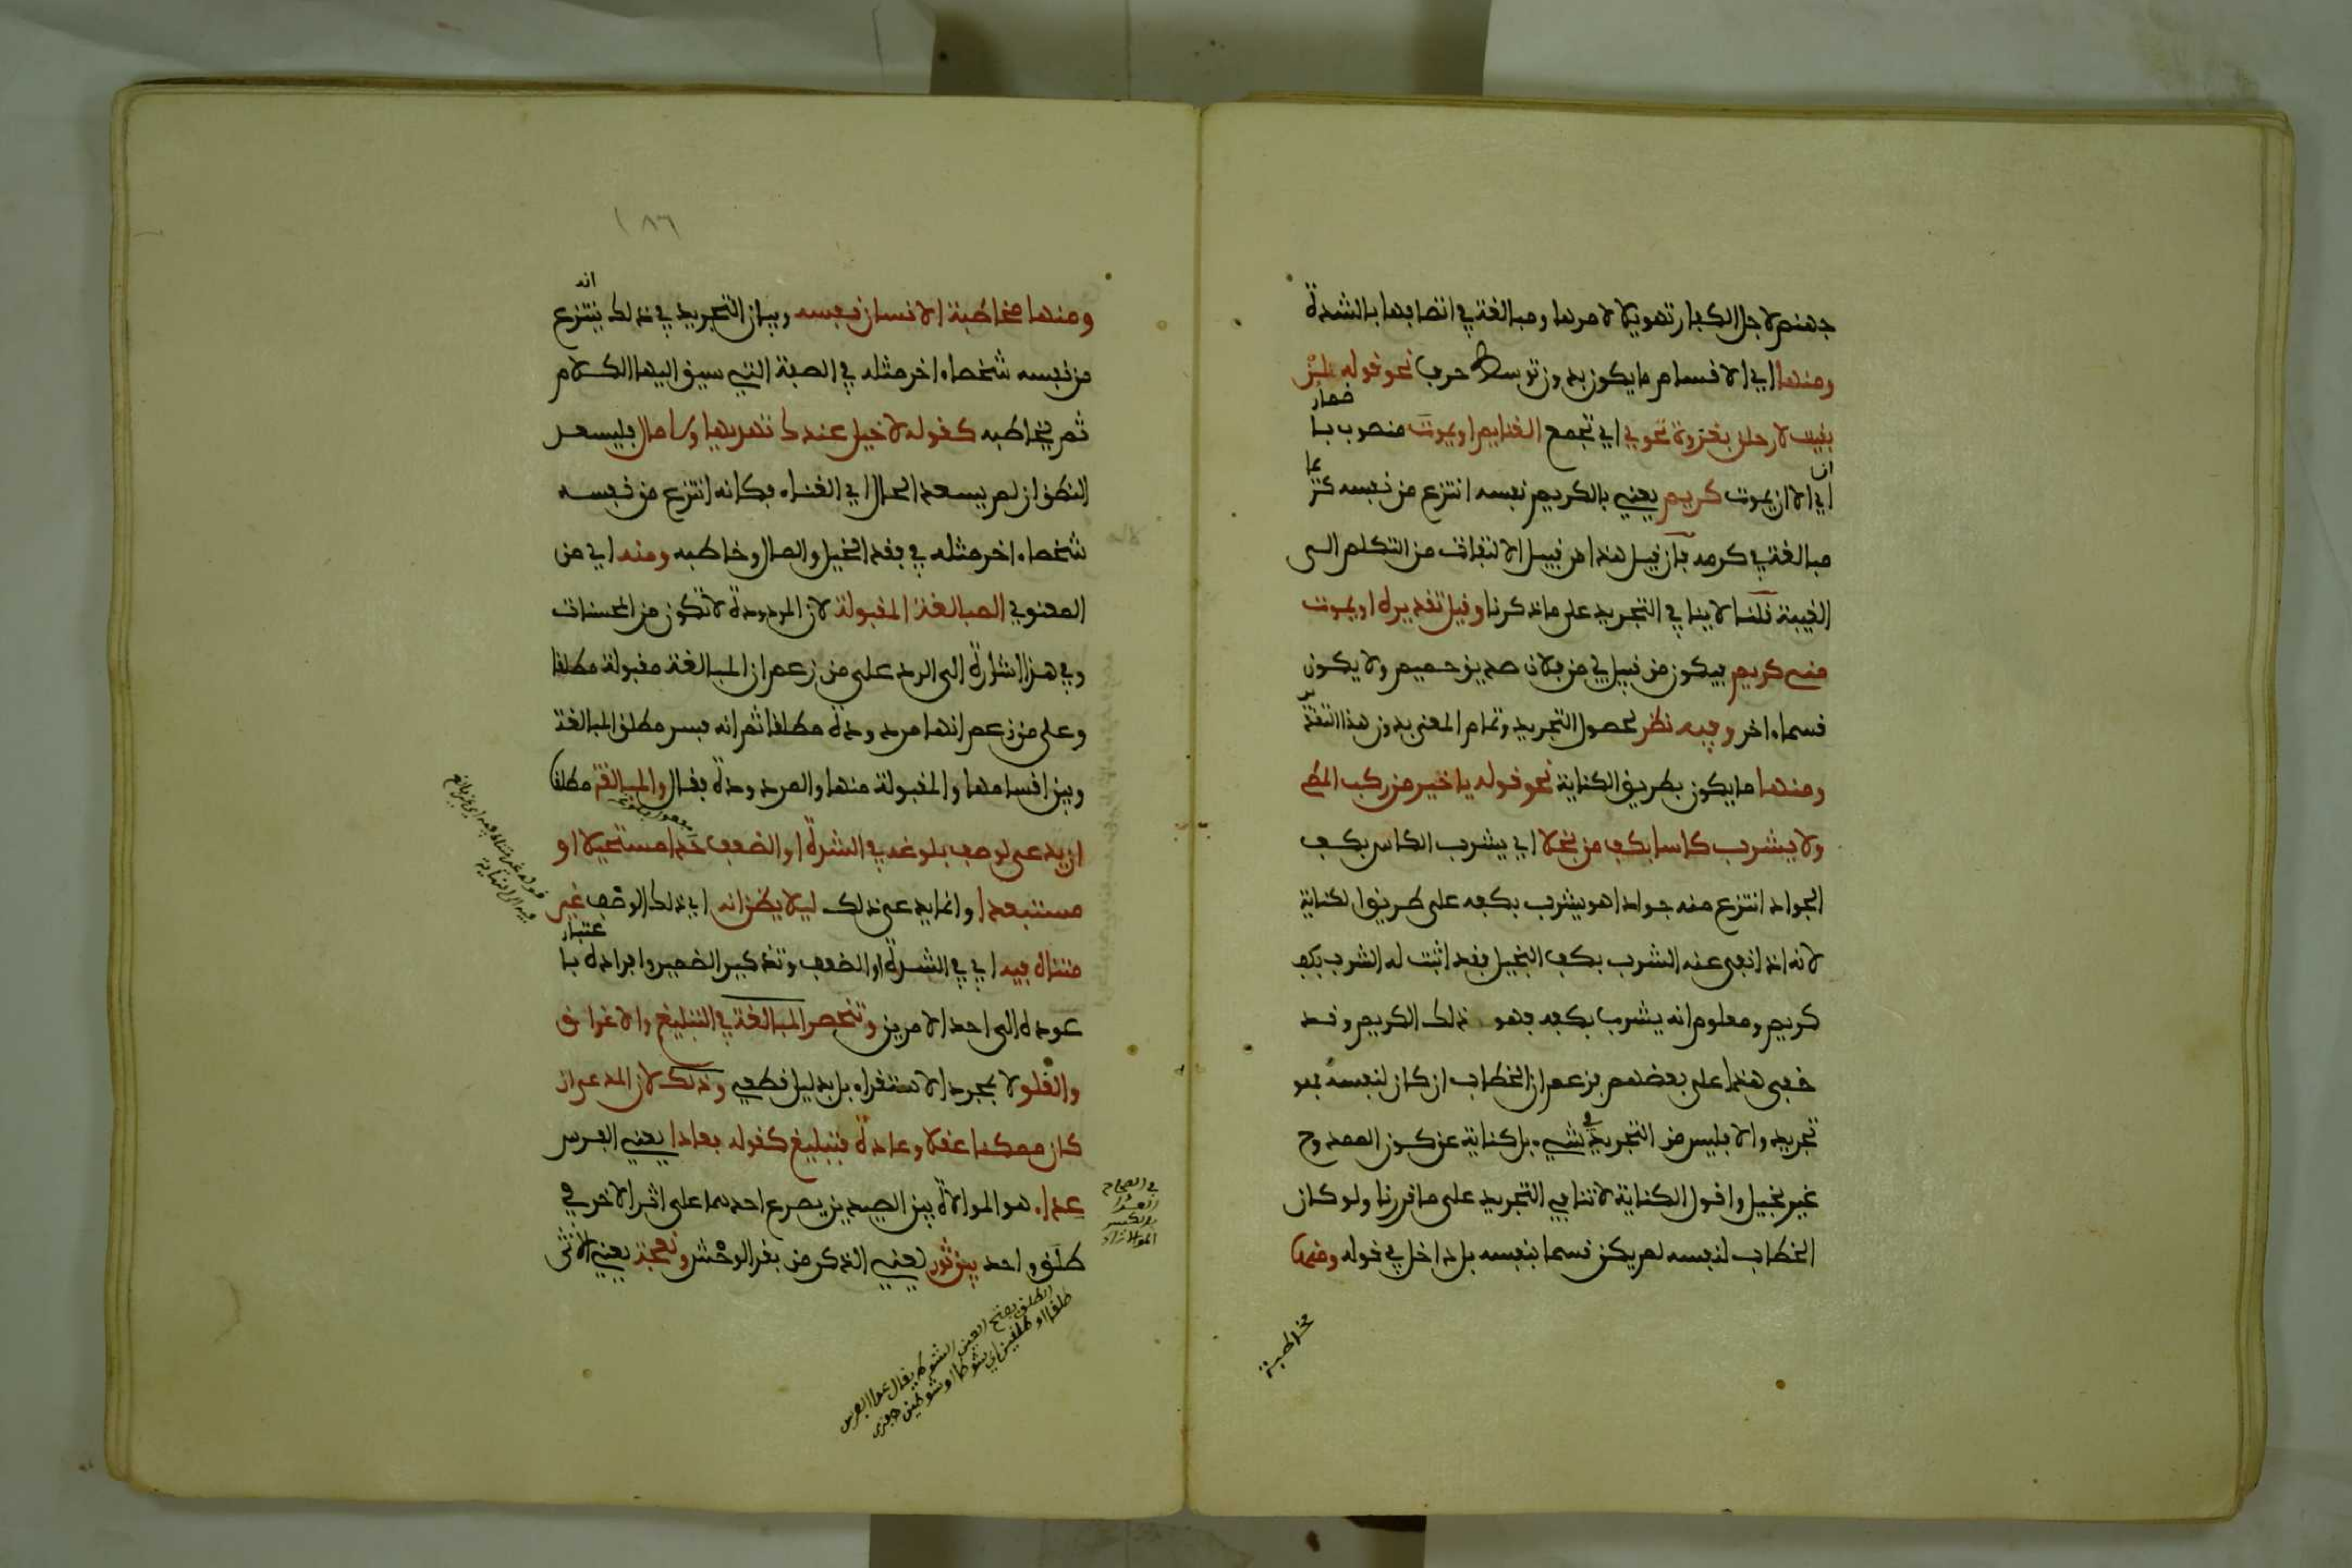 جهنم لاجل الكفار تهويلا لامرها ومبالغة في اتصافها بالشدة
ومنها اي الاقسام ما يكون بدون توسط حرف نحو قوله فلئن
بقيت لارحلن بغزوة تحوي اي تجمع الغنايم او يموت منصوب باضمار
ان اي الا ان يموت كريم يعني بالكريم نفسه انتزع من نفسه كريما
مبالغة في كرمه فان قيل هذا من قبيل الالتفات من التكلم الى
الغيبة قلنا لا ينافي التجريد على ما ذكرنا وقيل تقديره او يموت
مني كريم فيكون من قبيل لي من فلان صديق حميم ولا يكون
قسما ءاخر وفيه نظر لحصول التجريد وتمام المعنى بدون هذا التقدير
ومنها ما يكون بطريق الكناية نحو قوله يا خير من ركب المطي
ولا يشرب كاسا بكف من بخلا اي يشرب الكاس بكف
الجواد انتزع منه جوادا هو يشرب بكفه على طريق الكناية
لانه اذا نفى عنه الشرب بكف البخيل فقد اثبت له الشرب بكف
كريم ومعلوم انه يشرب بكفه فهو ذلك الكريم وقد
خفى هذا على بعضهم فزعم ان الخطاب ان كان لنفسه فهو
تجريد والا فليس من التجريد في شيء بل كناية عن كون الممدوح
غير بخيل واقول الكناية لا تنافي التجريد على ما قررنا ولو كان
الخطاب لنفسه لم يكن قسما بنفسه بل داخل في قوله ومنها
مخاطبة
١٨٦
ومنها مخاطبة الانسان نفسه وبيان التجريد في ذلك انه ينتزع
من نفسه شخصا ءاخر مثله في الصفة التي سيق اليها الكلام
ثم يخاطبه كقوله لا خيل عندك تهديها ولا مال فليسعد
النطق ان لم يسعد الحال اي الغناء فكانه انتزع من نفسه
شخصا ءاخر مثله في فقد الخيل والمال وخاطبه ومنه اي من
المعنوي المبالغة المقبولة لان المردودة لا تكون من المحسنات
وفي هذا اشارة الى الرد على من زعم ان المبالغة مقبولة مطلقا
وعلى من زعم انها مردودة مطلقا ثم انه فسر مطلق المبالغة
وبين اقسامها والمقبولة منها والمردودة فقال والمبالغة مطلقا
ان يدعى لوصف بلوغه في الشدة او الضعف حدا مستحيلا او
مستبعدا وانما يدعى ذلك ليلا يظن انه اي ذلك الوصف غير
متناه فيه اي في الشدة او الضعف وتذكير الضمير وافراده باعتبار
عوده الى احد الامرين وتنحصر المبالغة في التبليغ والاغراق
والغلو لا بمجرد الاستقراء بل بدليل قطعي وذلك لان المدعى ان
كان ممكنا عقلا وعادة فتبليغ كقوله فعادا يعني الفرس
عداء هو الموالاة بين الصيدين يصرع احدهما على اثر الاخر في
طلق واحد بين ثور يعني الذكر من بقر الوحش ونعجة يعني الانثى
في الصحاح
العداء
بالكسر
الموالاة
الطلق بفتح العين الشوط يقال عدا الفرس
طلقا او طلقين اي شوطا او شوطين